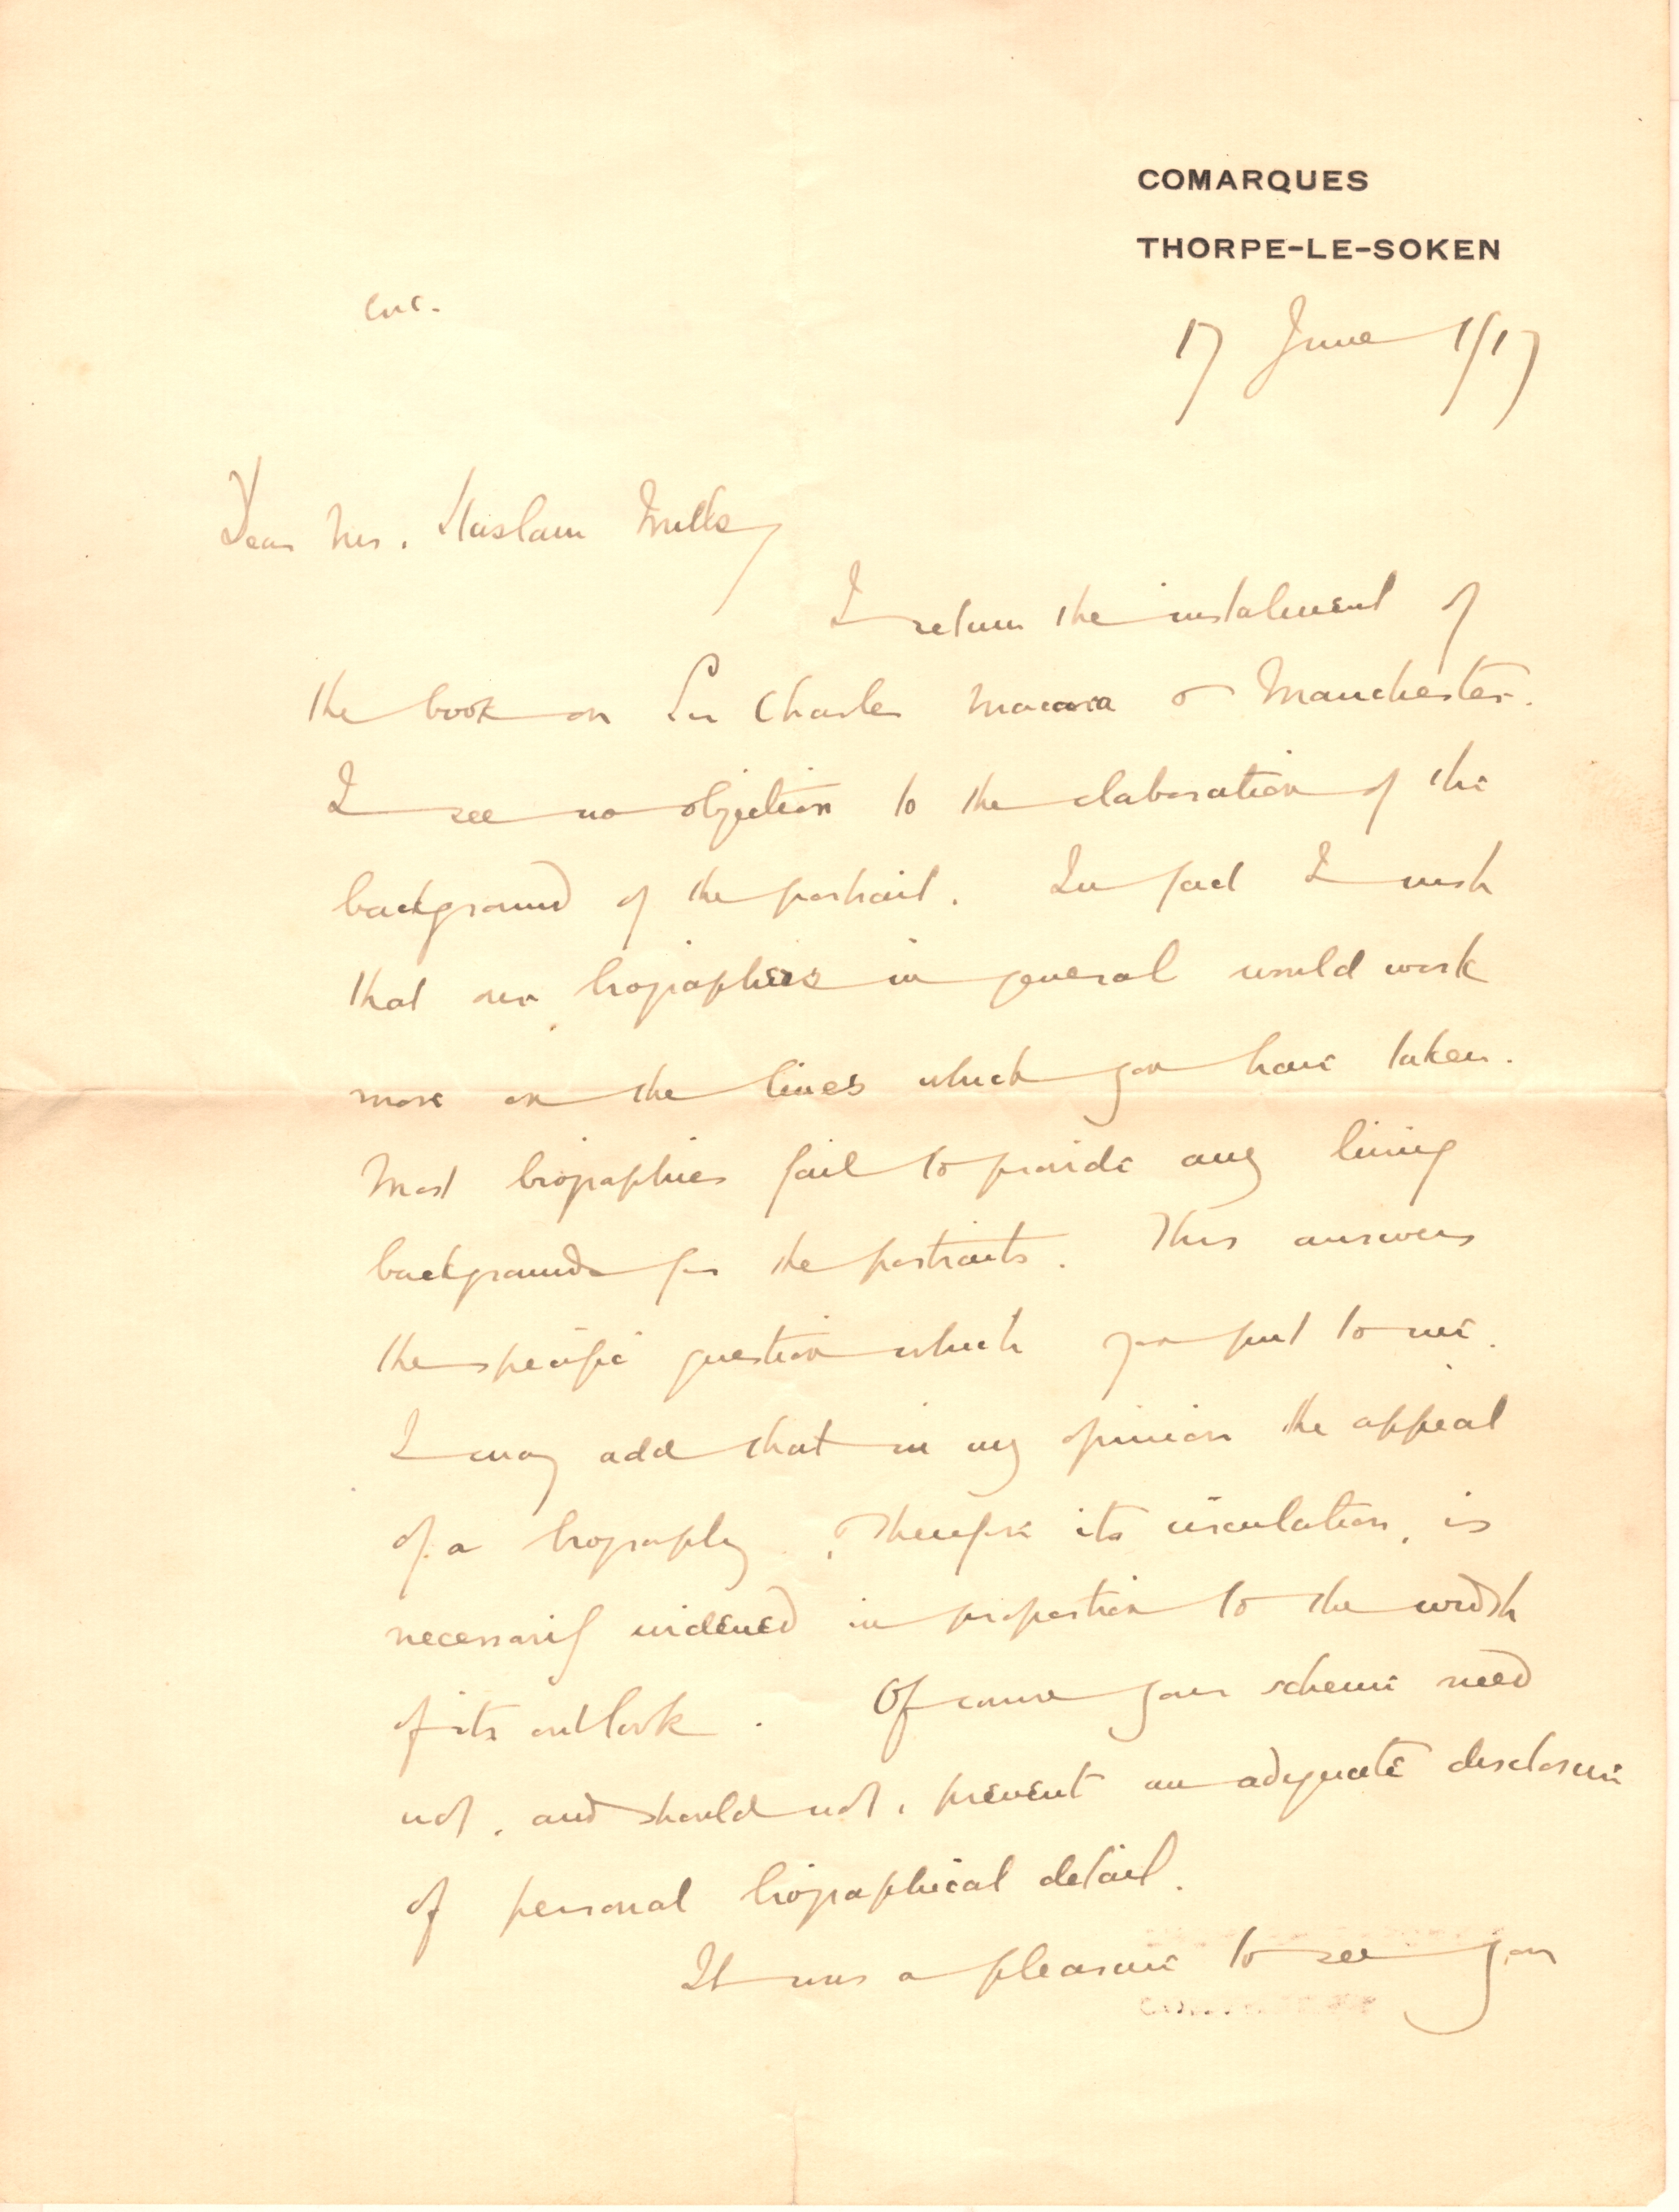 COMARQUES
THORPE-LE-SOKEN
enc.
17 June 1917
Dear Mr. Haslam Mills,
I return the instalment of
the book on Sir Charles Macara & Manchester.
I see no objection to the elaboration of the
background of the portrait. In fact I wish
that our biographers in general would work
more on the lines which you have taken.
Most biographies fail to provide any living
backgrounds for the portraits. This answers
the specific question which you put to me.
I may add that in my opinion the appeal
of a biography, & therefore its circulation, is
necessarily widened in proportion to the width
of its outlook. Of course your scheme need
not, and should not, prevent an adequate disclosure
of personal biographical detail.
It was a pleasure to see you